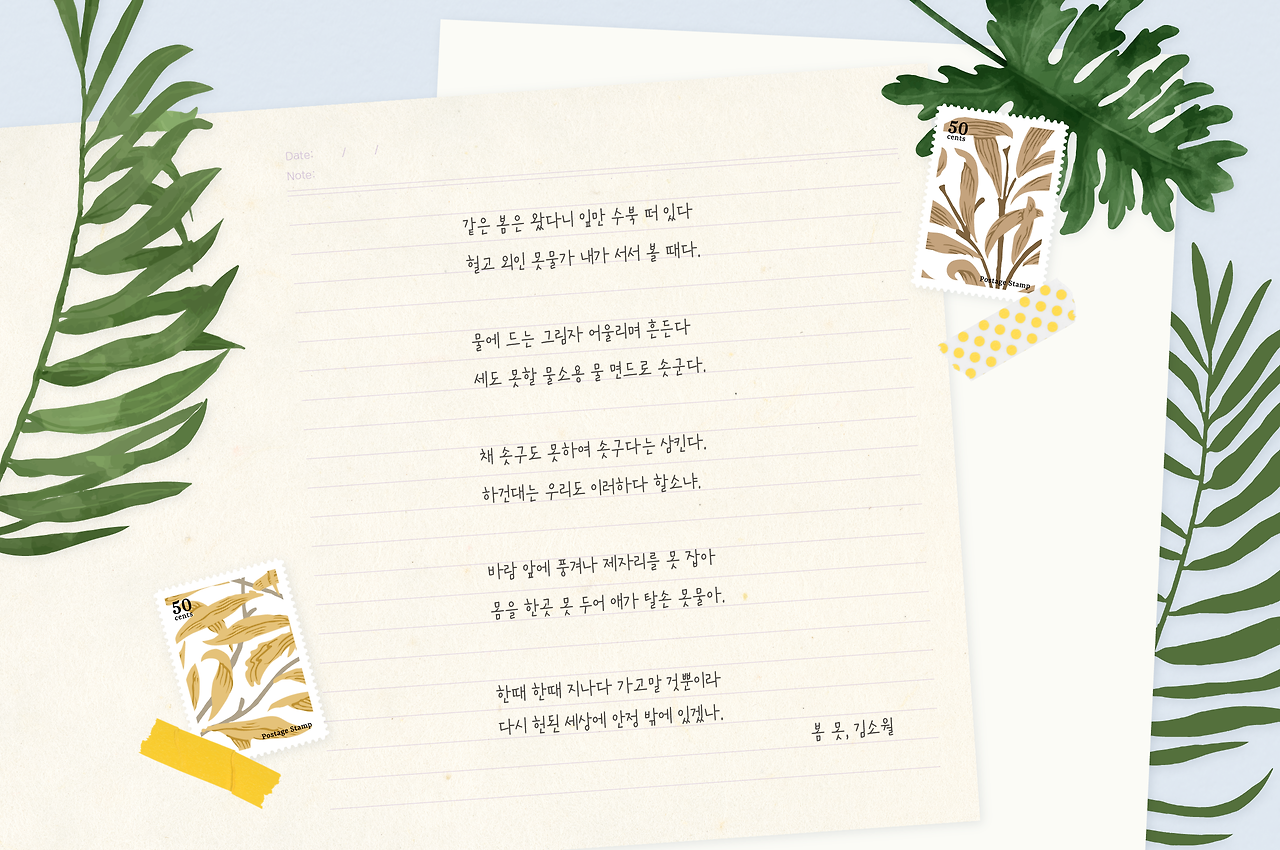 Date: / /
Note:
같은 봄은 왔다니 잎만 수북 떠 있다
헐고 외인 못물가 내가 서서 볼 때다.
물에 드는 그림자 어울리며 흔든다
세도 못할 물소용 물 면드로 솟군다.
채 솟구도 못하여 솟구다는 삼킨다.
하건대는 우리도 이러하다 할소냐.
바람 앞에 풍겨나 제자리를 못 잡아
몸을 한곳 못 두어 애가 탈손 못물아.
한때 한때 지나다 가고말 것뿐이라
다시 헌된 세상에 안정 밖에 있겠나.
봄 못, 김소월
50
cents
Postage Stamp
50
cents
Postage Stamp